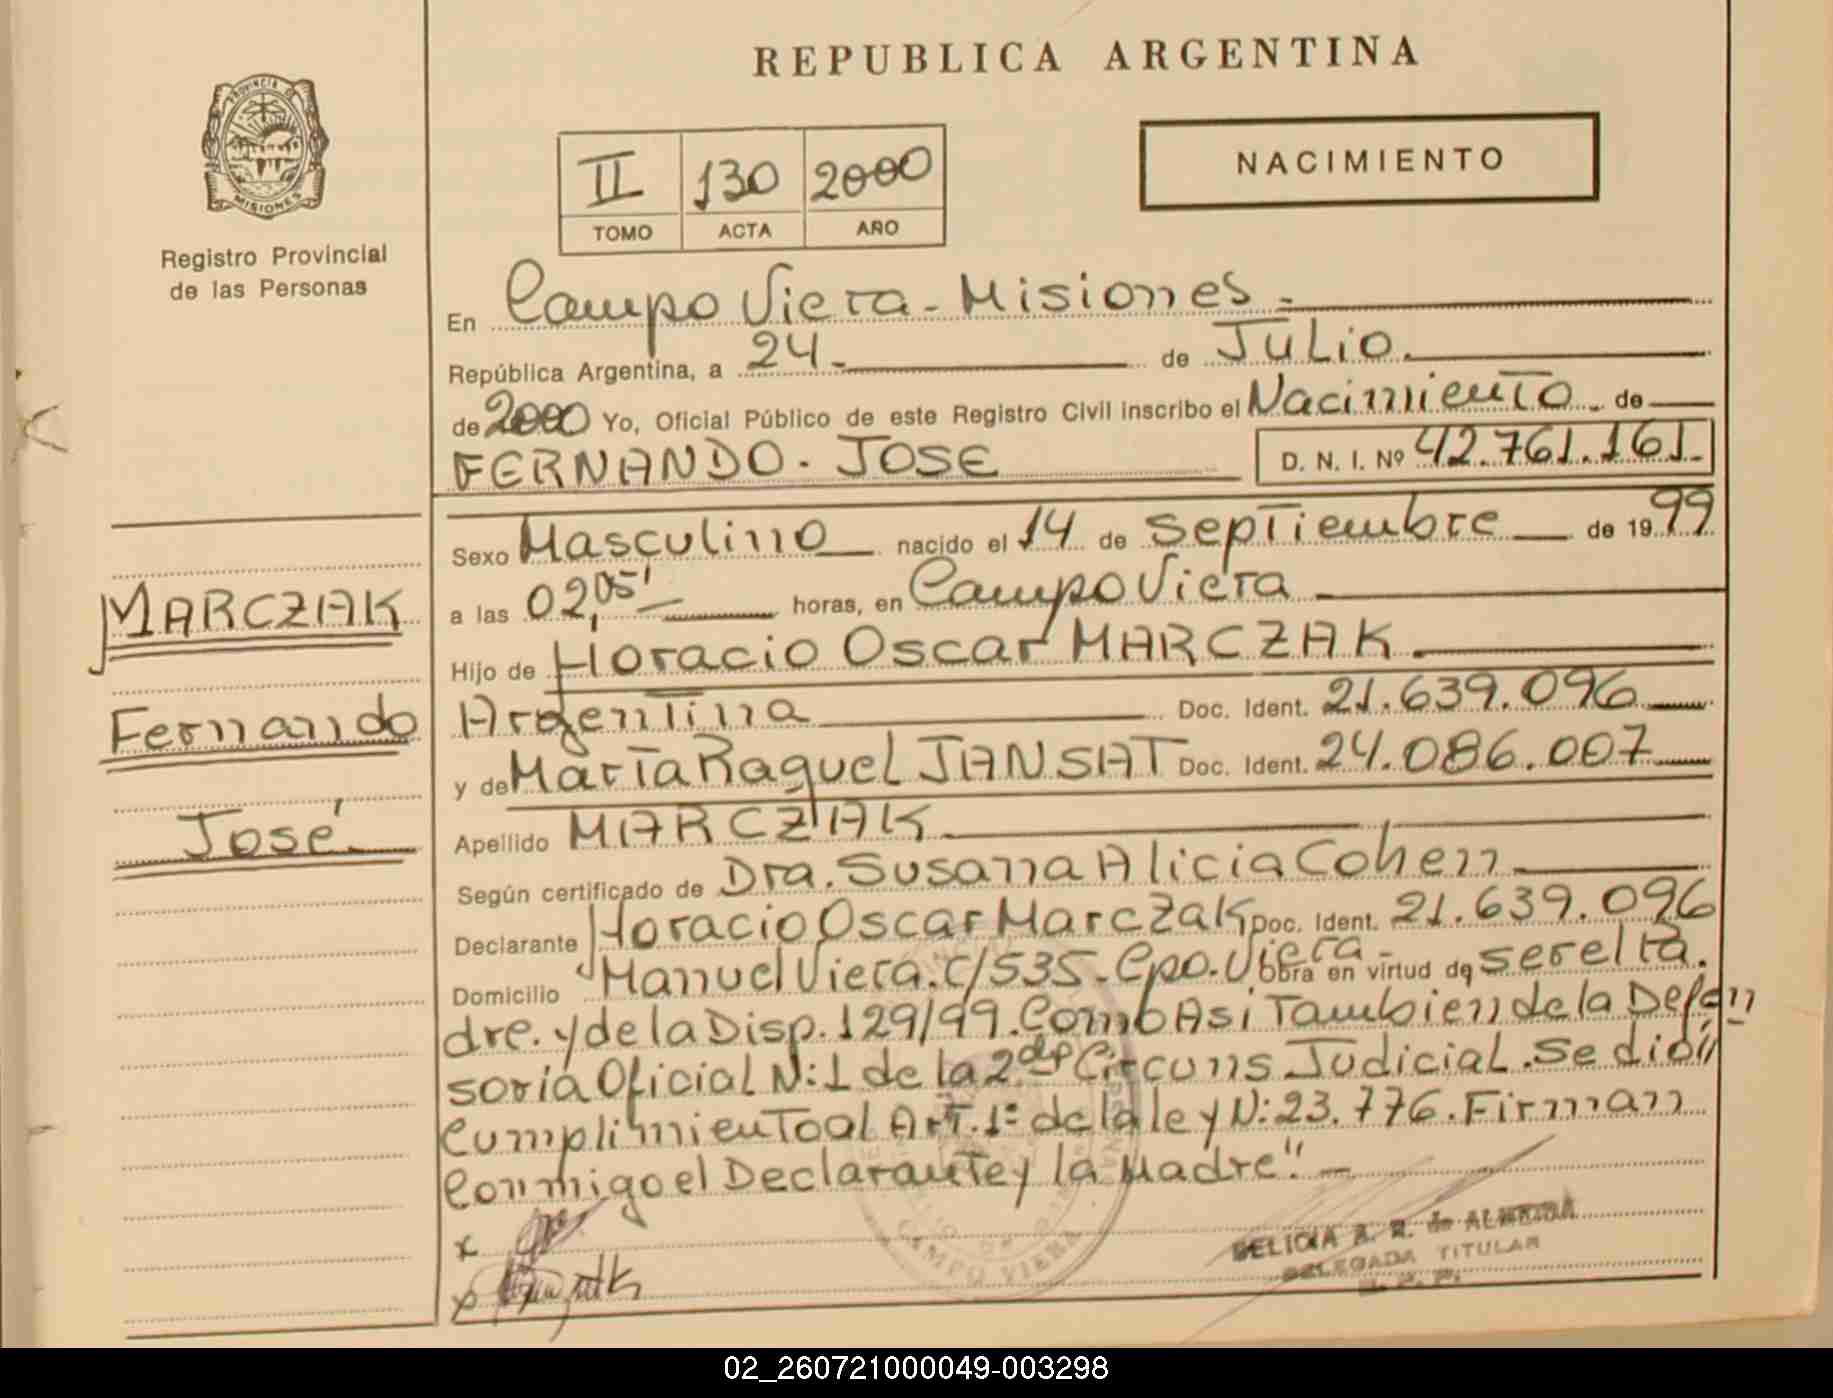 REPUBLICA ARGENTINA
PROVINCIA DE
MISIONES
Registro Provincial
de las Personas
II 130 2000
TOMO ACTA AÑO
NACIMIENTO
En Campo Viera - Misiones.
República Argentina, a 24 de Julio.
de 2000 Yo, Oficial Público de este Registro Civil inscribo el Nacimiento de
FERNANDO. JOSE D. N. I. Nº 42.761.161.
Sexo Masculino nacido el 14 de septiembre de 1999
a las 02,05' horas, en Campo Viera
Hijo de Horacio Oscar MARCZAK
Argentina Doc. Ident. 21.639.096
y de María Raquel JANSAT Doc. Ident. 24.086.007
Apellido MARCZAK
Según certificado de Dra. Susana Alicia Cohen
Declarante Horacio Oscar Marczak Doc. Ident. 21.639.096
Domicilio Manuel Viera. C/535 - Cpo. Viera - Obra en virtud de ser el Pa.
dre. y de la Disp. 129/99. Como Asi Tambien de la Defen
soría Oficial N:1 de la 2da Circuns Judicial. Se dio"
Cumplimiento al Art. 1º de la ley N: 23.776. Firman
Conmigo el Declarante y la Madre". -
MARCZAK
Fernando
José
CAMPO VIERA
DELICIA B. R. de ALMEIDA
DELEGADA TITULAR
R. P. P.
02_260721000049-003298